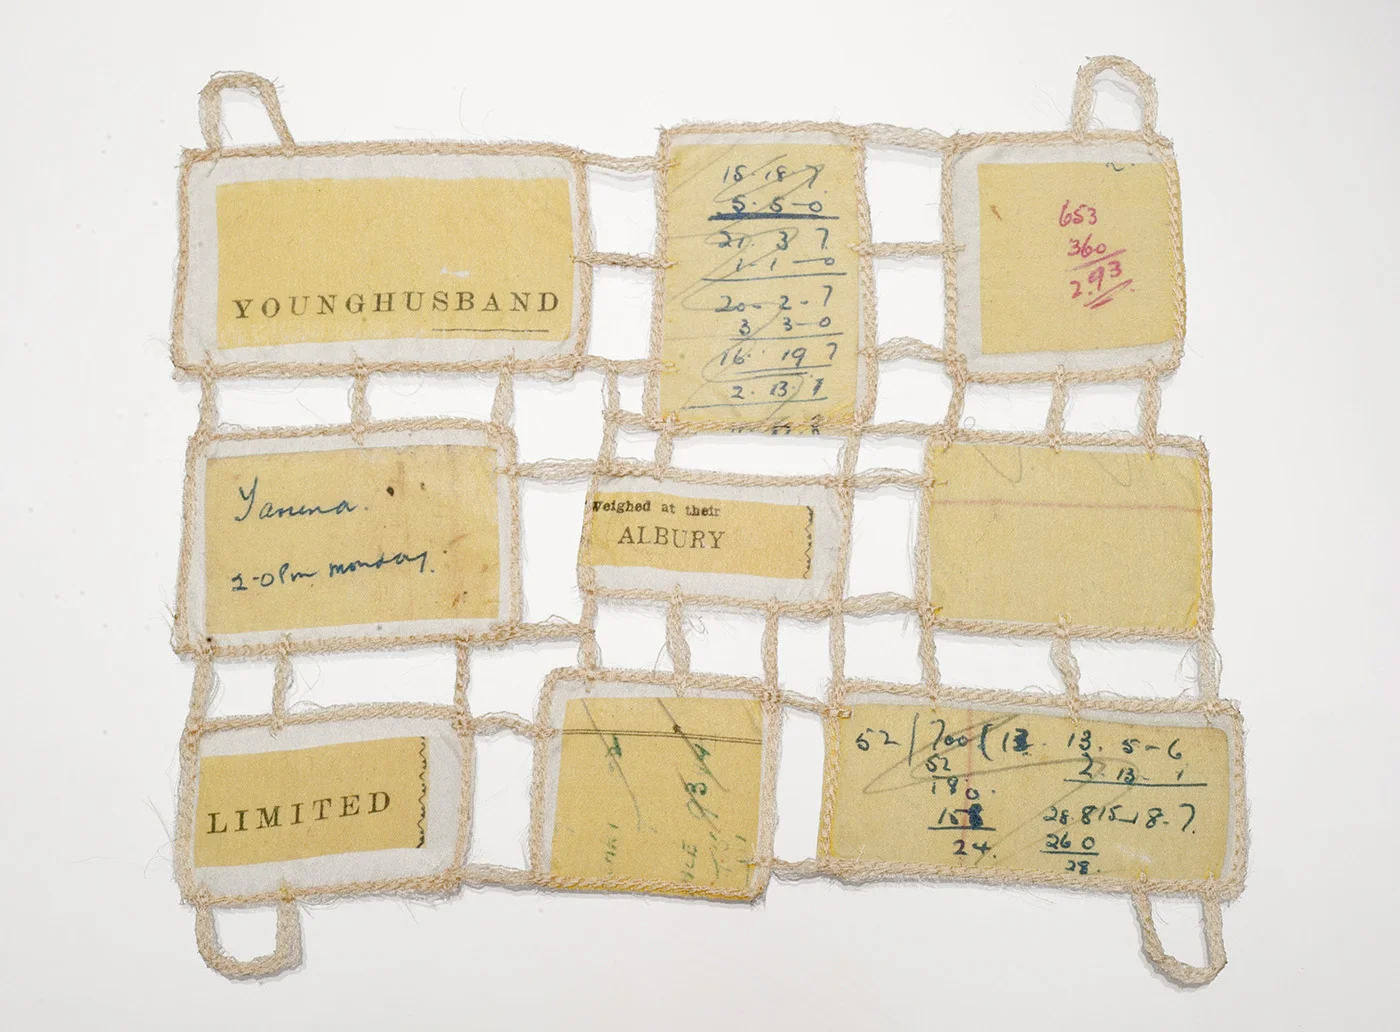 YOUNGHUSBAND
18. 18. 7
5. 5-0
21. 3 7.
1-1-0
20-2-7
3 3-0
16. 19 7
2. 13. 1
653
360
293
Yanina.
2-0 Pm monday.
Weighed at their
ALBURY
LIMITED
52 / 700 ( 13. 13. 5-6
52 2. 13- 1
180.
156 28.815 18-7.
24. 260
28.